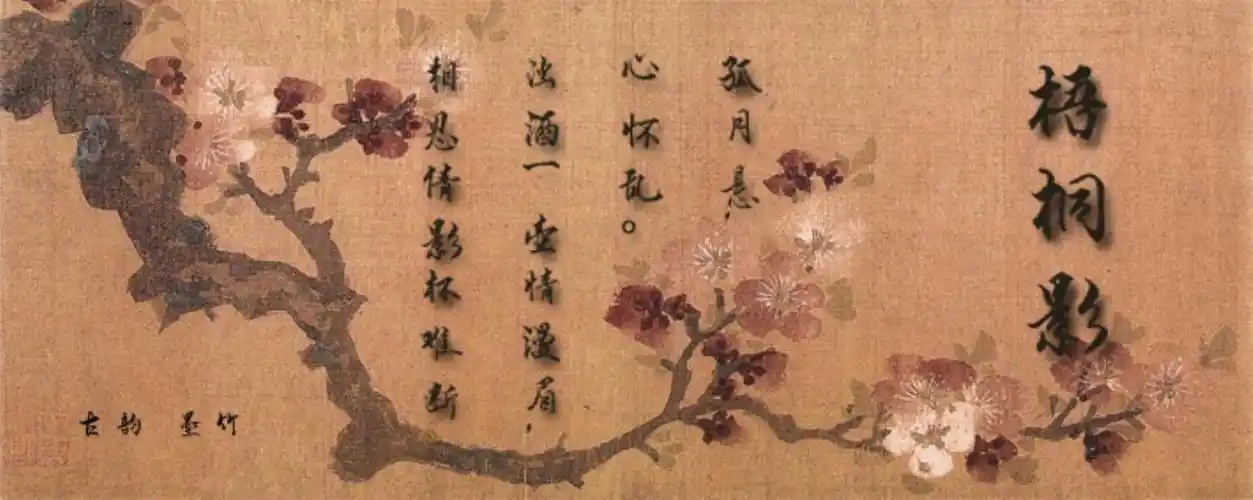 梧桐影
孤月悬，
心怀乱。
浊酒一壶情漫眉，
相思情影杯难断
古韵 墨竹